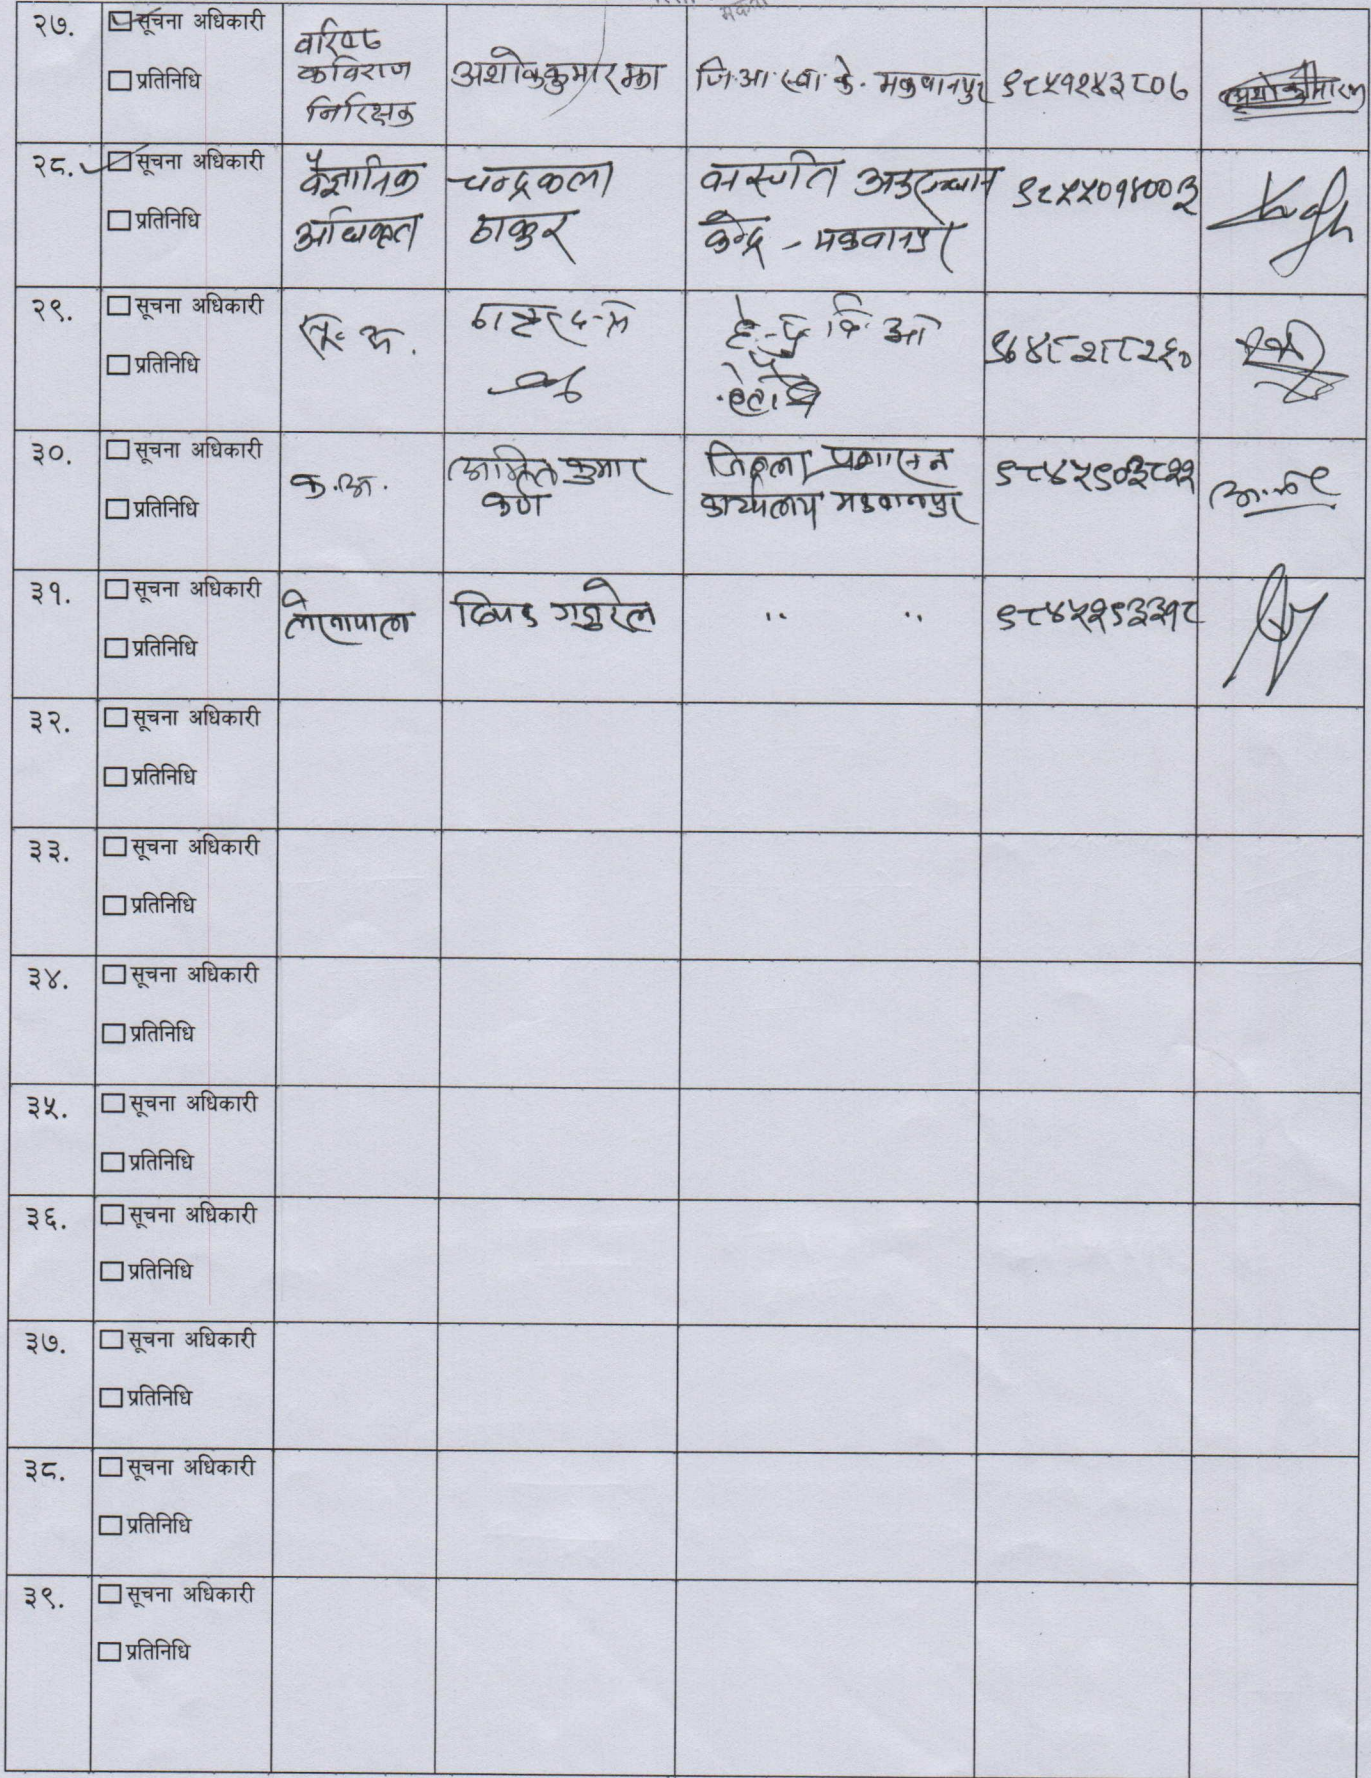 २७.
सूचना अधिकारी
प्रतिनिधि
वरिष्ठ
कविराज
निरिक्षक
अशोक कुमार झा
जि.आ.स्वा.के. मकवानपुर
९८५१२४३८०७
२८.
सूचना अधिकारी
प्रतिनिधि
वैज्ञानिक
अधिकृत
चन्द्रकला
ठाकुर
वनस्पति अनुसन्धान
केन्द्र - मकवानपुर
९८५५०१४००३
२९.
सूचना अधिकारी
प्रतिनिधि
३०.
सूचना अधिकारी
प्रतिनिधि
क.अ.
कुमार
कर्ण
जिल्ला प्रशासन
कार्यालय मकवानपुर
३१.
सूचना अधिकारी
प्रतिनिधि
" "
९८४५२९३३१८
३२.
सूचना अधिकारी
प्रतिनिधि
३३.
सूचना अधिकारी
प्रतिनिधि
३४.
सूचना अधिकारी
प्रतिनिधि
३५.
सूचना अधिकारी
प्रतिनिधि
३६.
सूचना अधिकारी
प्रतिनिधि
३७.
सूचना अधिकारी
प्रतिनिधि
३८.
सूचना अधिकारी
प्रतिनिधि
३९.
सूचना अधिकारी
प्रतिनिधि